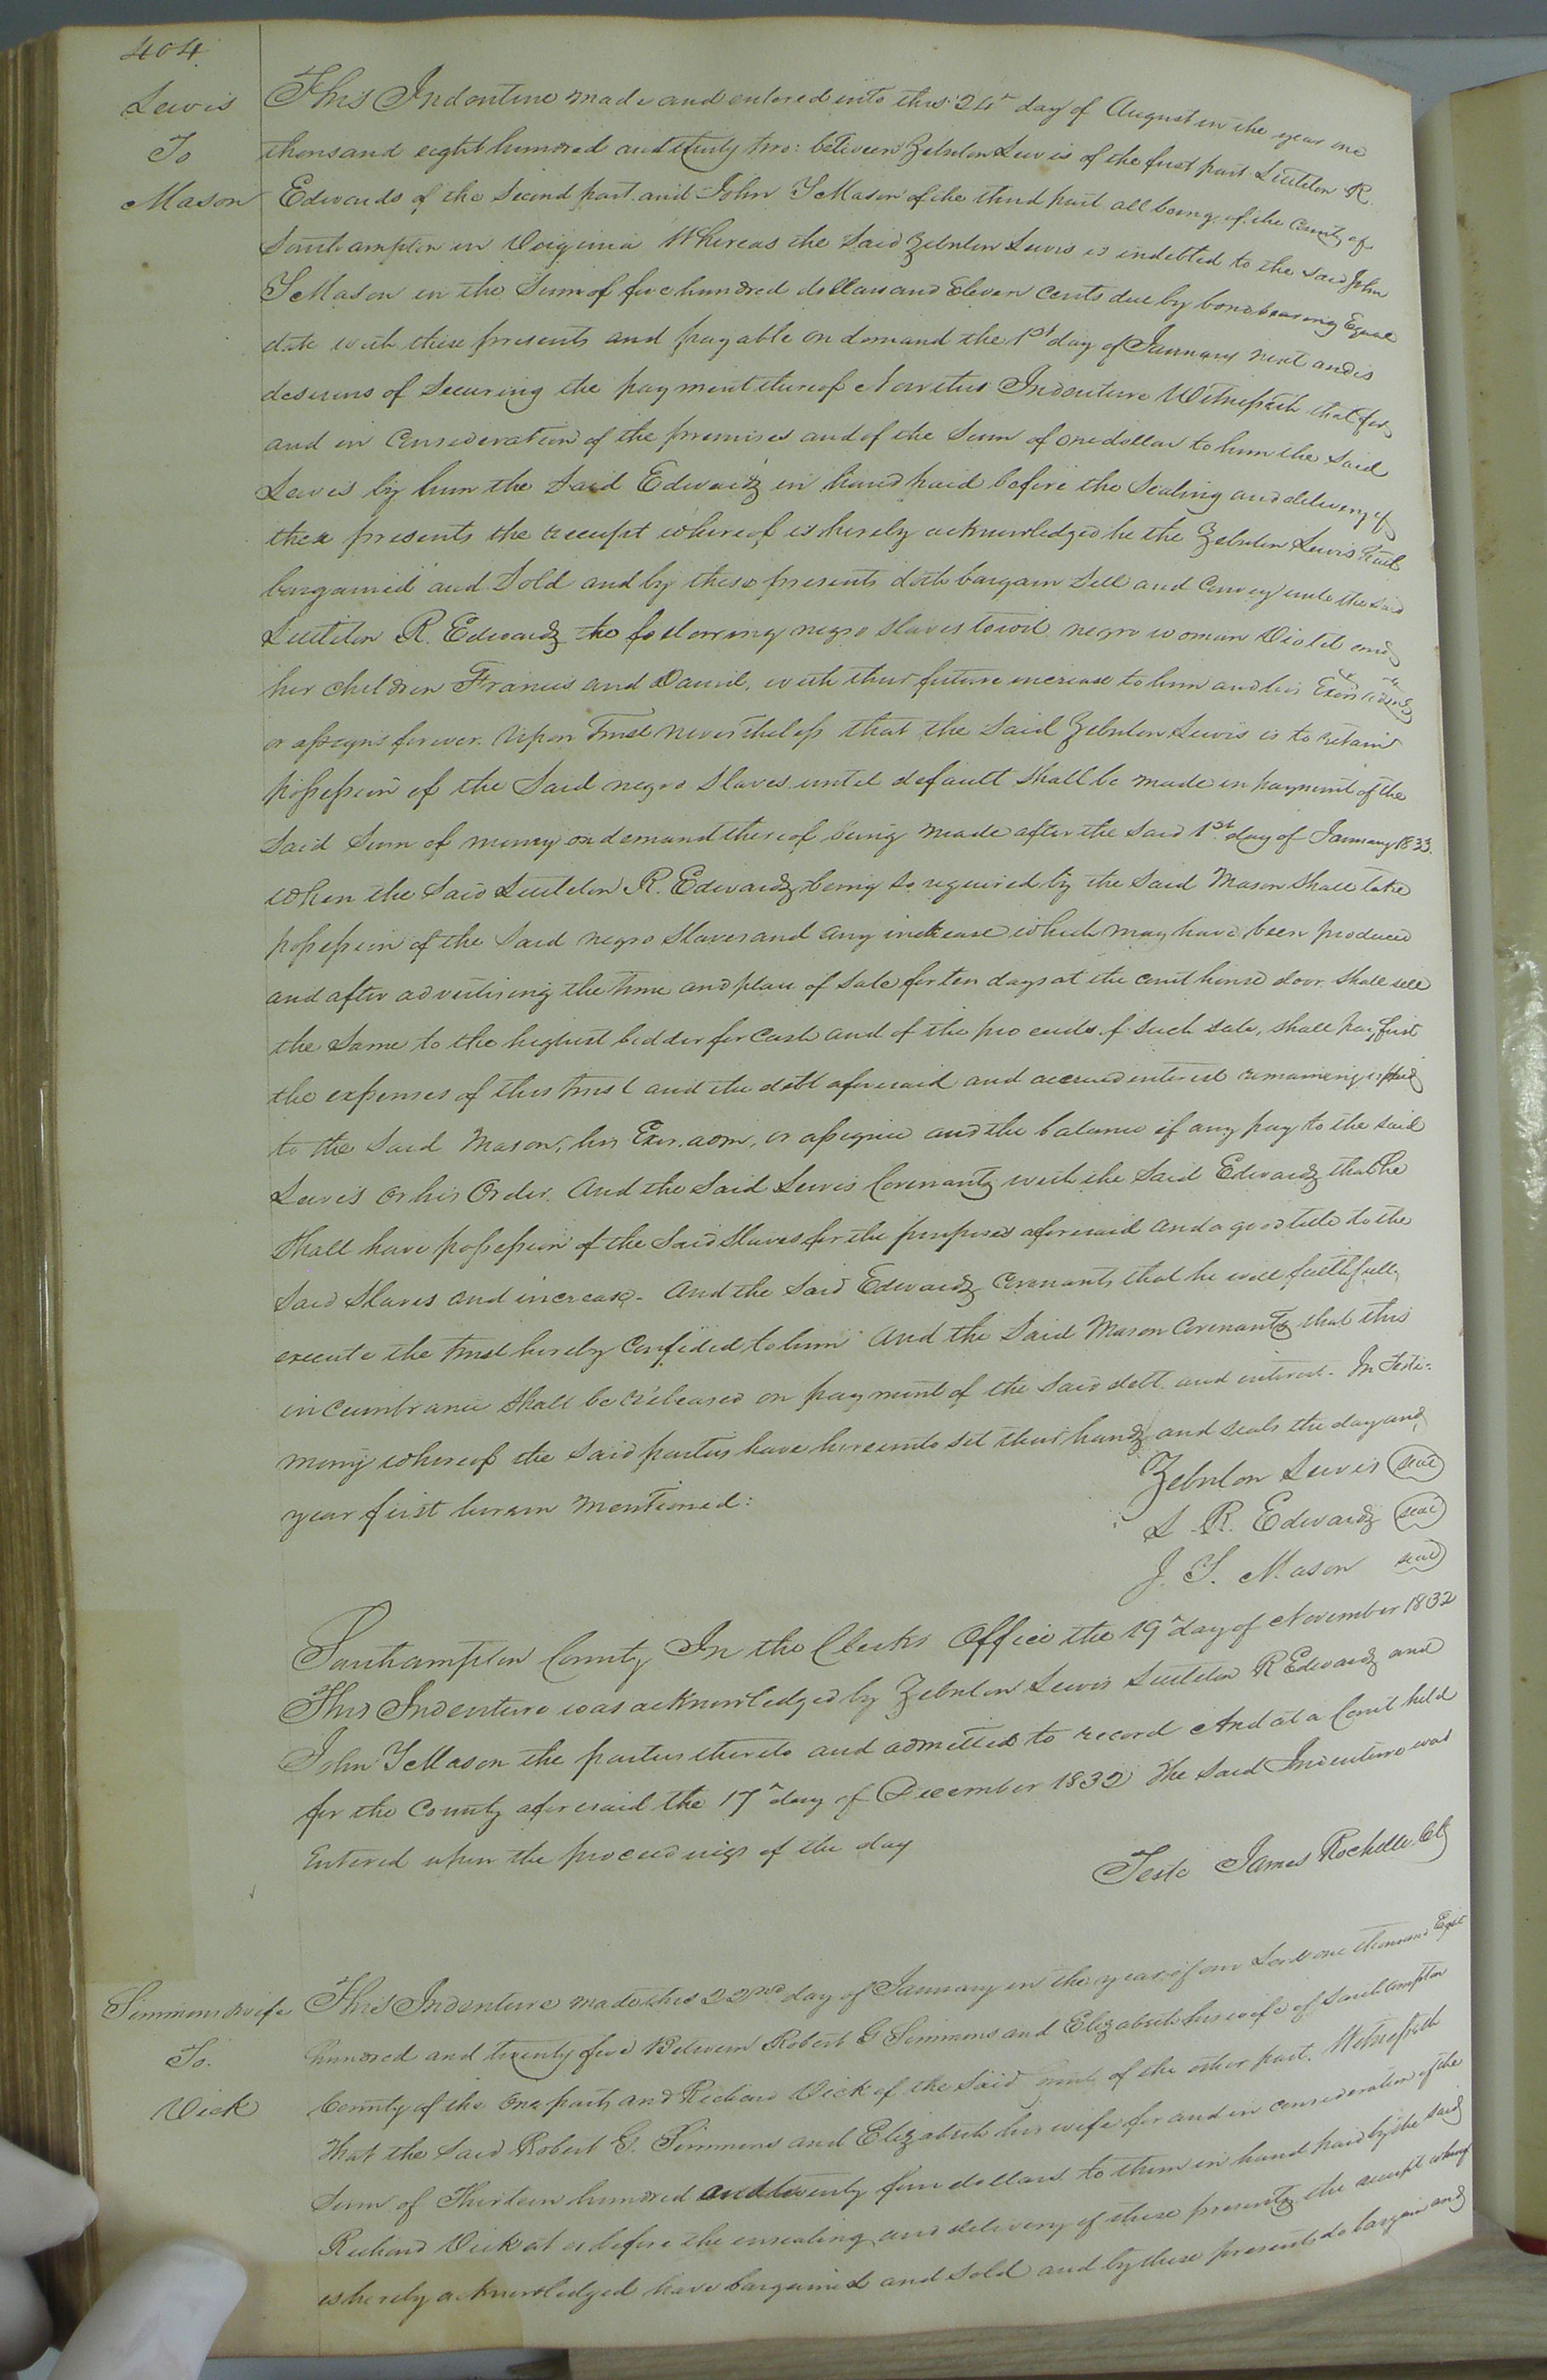 404
Lewis
To
Mason
This Indenture made and entered into this 24th day of August in the year one
thousand eight hundred and thirty two: between Zebulon Lewis of the first part Littleton R.
Edwards of the Second part and John Y Mason of the third part all being of the County of
Southampton in Virginia Whereas the Said Zebulon Lewis is indebted to the said John
Y Mason in the Sum of five hundred dollars and Eleven Cents due by bond bearing Equal
date with these presents and payable on demand the 1st day of January next and is
desirous of Securing the payment thereof Now this Indenture Witnesseth that for
and in Consideration of the premises and of the Sum of one dollar to him the Said
Lewis by him the Said Edwards in hand paid before the Sealing and delivery of
these presents the receipt whereof is hereby acknowledged he the Zebulon Lewis hath
bargained and Sold and by these presents doth bargain Sell and Convey unto the said
Littleton R. Edwards the following negro slaves towit negro woman Violet and
her children Francis and David, with their future increase to him and his Exors admrs
or assigns forever. Upon Trust nevertheless that the Said Zebulon Lewis is to retain
possession of the Said negro Slaves until default Shall be made in payment of the
Said Sum of money on demand thereof being made after the said 1st day of January 1833.
When the Said Littleton R. Edwards being so required by the Said Mason Shall take
possession of the Said negro Slaves and any increase which may have been produced
and after advertising the time and place of Sale for ten days at the court house door shall sell
the Same to the highest bidder for Cash and of the proceeds of Such sale, shall pay first
the expenses of this trust and the debt aforesaid and accrued interest remaining
to the Said Mason, his Exor. adm, or assignee and the balance if any pay to the said
Lewis or his Order. And the Said Lewis Covenants with the Said Edwards that he
Shall have possession of the Said Slaves for the purposes aforesaid and a good title to the
Said Slaves and increase. And the Said Edwards Covenants that he will faithfully
execute the trust hereby Confided to him And the Said Mason Covenants that this
incumbrance Shall be released on payment of the Said debt and interest. In Testi=
mony whereof the Said parties have hereunto Set their hands and seals the day and
year first herein mentioned:
Zebulon Lewis seal
L. R. Edwards seal
J. Y. Mason seal
Southampton County In the Clerks Office the 19th day of November 1832
This Indenture was acknowledged by Zebulon Lewis Littleton R Edwards and
John Y Mason the parties thereto and admitted to record And at a Court held
for the County aforesaid the 17th day of December 1832 The Said Indenture was
Entered upon the proceedings of the day
Teste James Rochelle Clk
Simmons & wife
To.
Vick
This Indenture made this 22nd day of January in the year of our Lord one thousand Eight
hundred and twenty five Between Robert G Simmons and Elizabeth his wife of Southampton
County of the one part, and Richard Vick of the Said of the other part. Witnesseth
that the Said Robert G. Simmons and Elizabeth his wife for and in consideration of the
Sum of Thirteen hundred and twenty four dollars to them in hand paid by the said
Richard Vick at or before the ensealing and delivery of these presents the receipt whereof
is hereby acknowledged have bargained and Sold and by these presents do bargain and